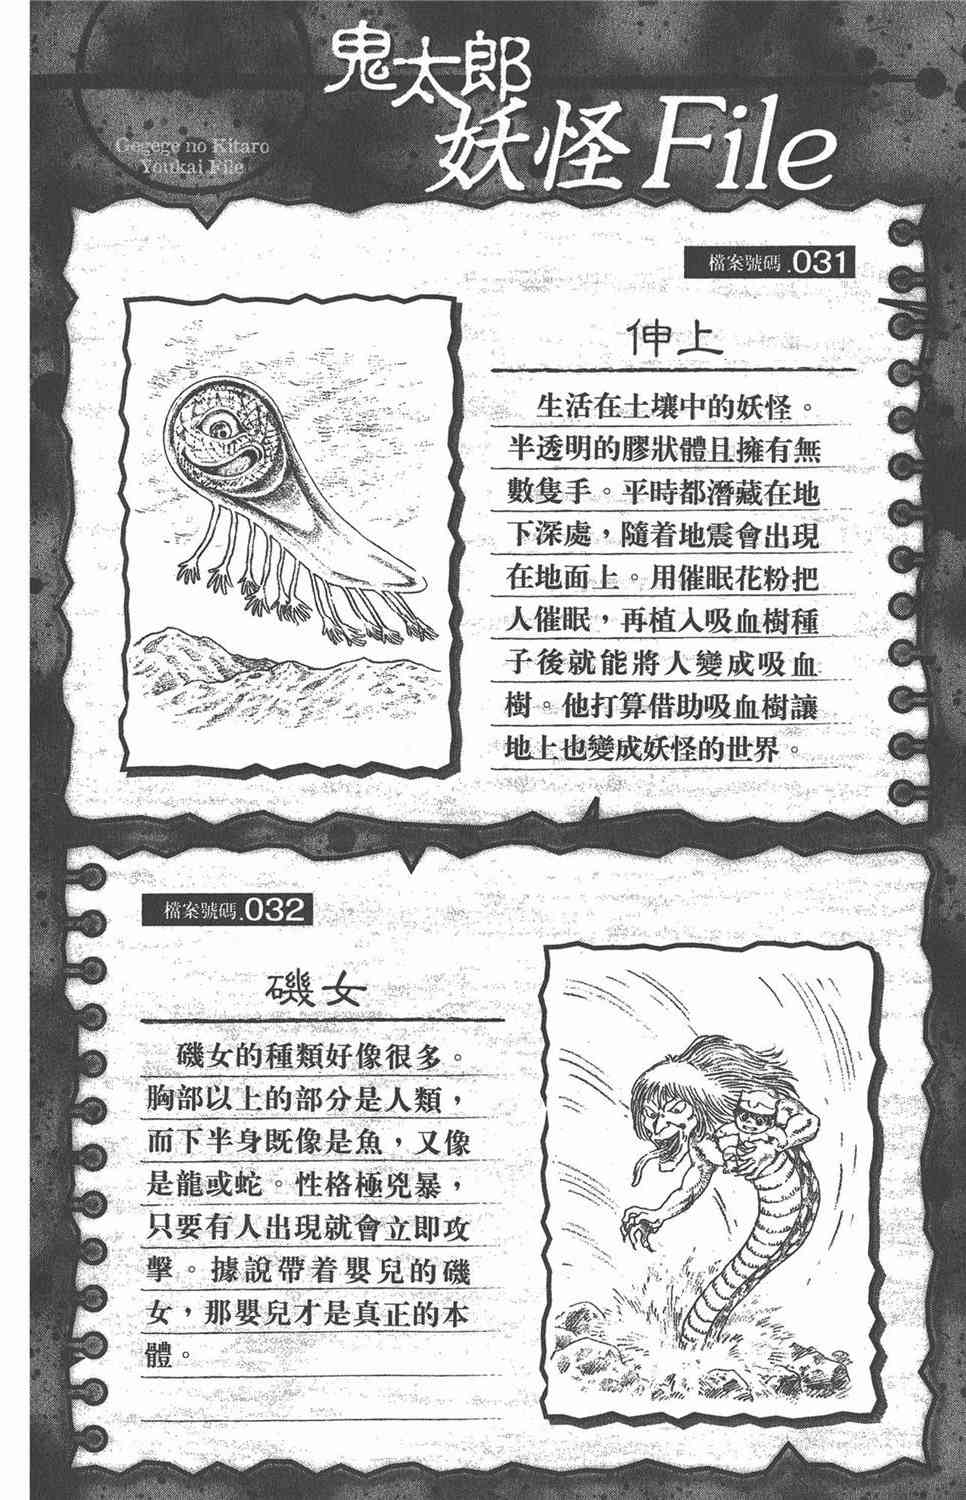 鬼太郎
妖怪File
Gegege no Kitaro
Youkai File
檔案號碼.031
伸上
生活在土壤中的妖怪。
半透明的膠狀體且擁有無
數隻手。平時都潛藏在地
下深處，隨着地震會出現
在地面上。用催眠花粉把
人催眠，再植入吸血樹種
子後就能將人變成吸血
樹。他打算借助吸血樹讓
地上也變成妖怪的世界。
檔案號碼.032
磯女
磯女的種類好像很多。
胸部以上的部分是人類，
而下半身既像是魚，又像
是龍或蛇。性格極兇暴，
只要有人出現就會立即攻
擊。據說帶着嬰兒的磯
女，那嬰兒才是真正的本
體。